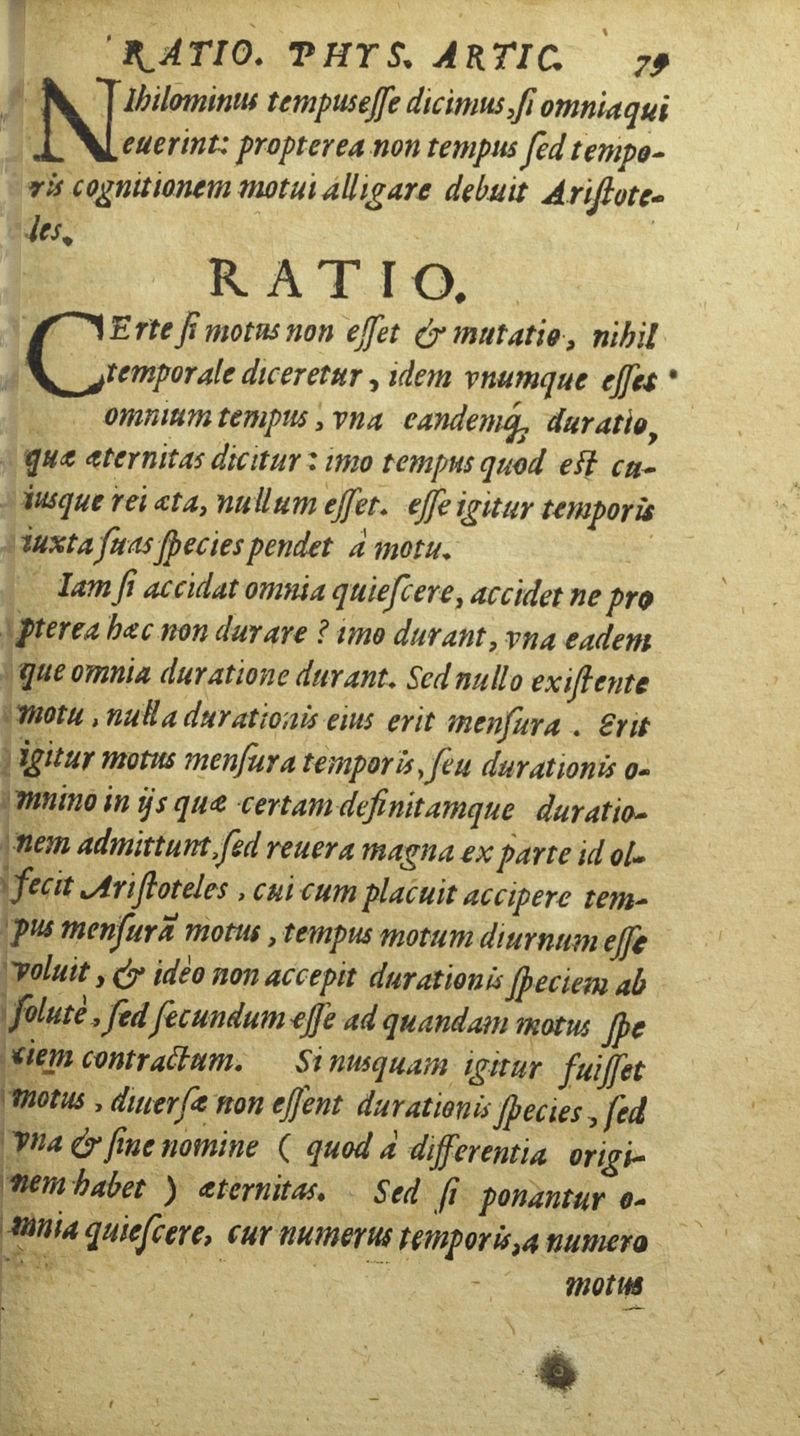 RATIO. PHYS. ARTIC. 79
NIhilominus tempus eſſe dicimus, ſi omnia qui
euerint: propterea non tempus ſed tempo-
ris cognitionem motui alligare debuit Ariſtote-
les.
RATIO.
CErte ſi motus non eſſet & mutatio, nihil
temporale diceretur, idem vnumque eſſet
omnium tempus, vna eandemq́; duratio,
quæ æternitas dicitur: imo tempus quod eſt cu-
iusque rei æta, nullum eſſet. eſſe igitur temporis
iuxta ſuas ſpecies pendet à motu.
Iam ſi accidat omnia quieſcere, accidet ne pro
pterea hæc non durare? imo durant, vna eadem
que omnia duratione durant. Sed nullo exiſtente
motu, nulla durationis eius erit menſura. Erit
igitur motus menſura temporis, ſeu durationis o-
mnino in ijs quæ certam definitamque duratio-
nem admittunt, ſed reuera magna ex parte id ol-
fecit Ariſtoteles, cui cum placuit accipere tem-
pus menſurã motus, tempus motum diurnum eſſe
voluit, & ideo non accepit durationis ſpeciem ab
ſolutè, ſed ſecundum eſſe ad quandam motus ſpe
ciem contractum. Si nusquam igitur fuiſſet
motus, diuerſæ non eſſent durationis ſpecies, ſed
vna & ſine nomine ( quod à differentia origi-
nem habet ) æternitas. Sed ſi ponantur o-
mnia quieſcere, cur numerus temporis, a numero
motus